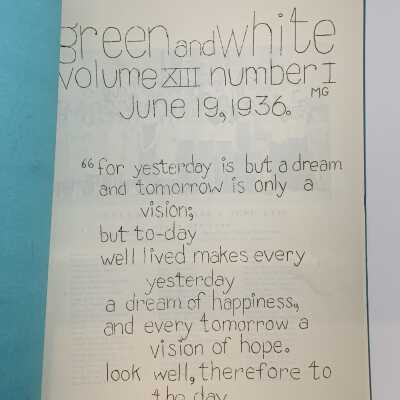 green and white
volume XIII number I
MG
June 19, 1936.
"for yesterday is but a dream
and tomorrow is only a
vision;
but to-day
well lived makes every
yesterday
a dream of happiness,
and every tomorrow a
vision of hope.
look well, therefore to
the day